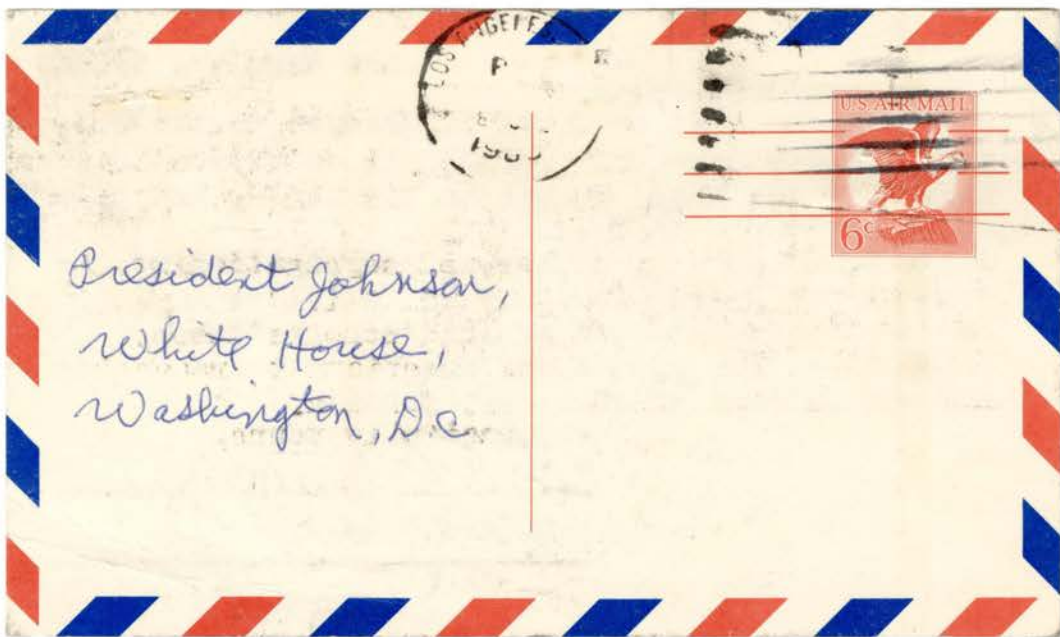 LOS ANGELES
P
U.S. AIR MAIL
6c
President Johnson,
White House,
Washington, D.C.